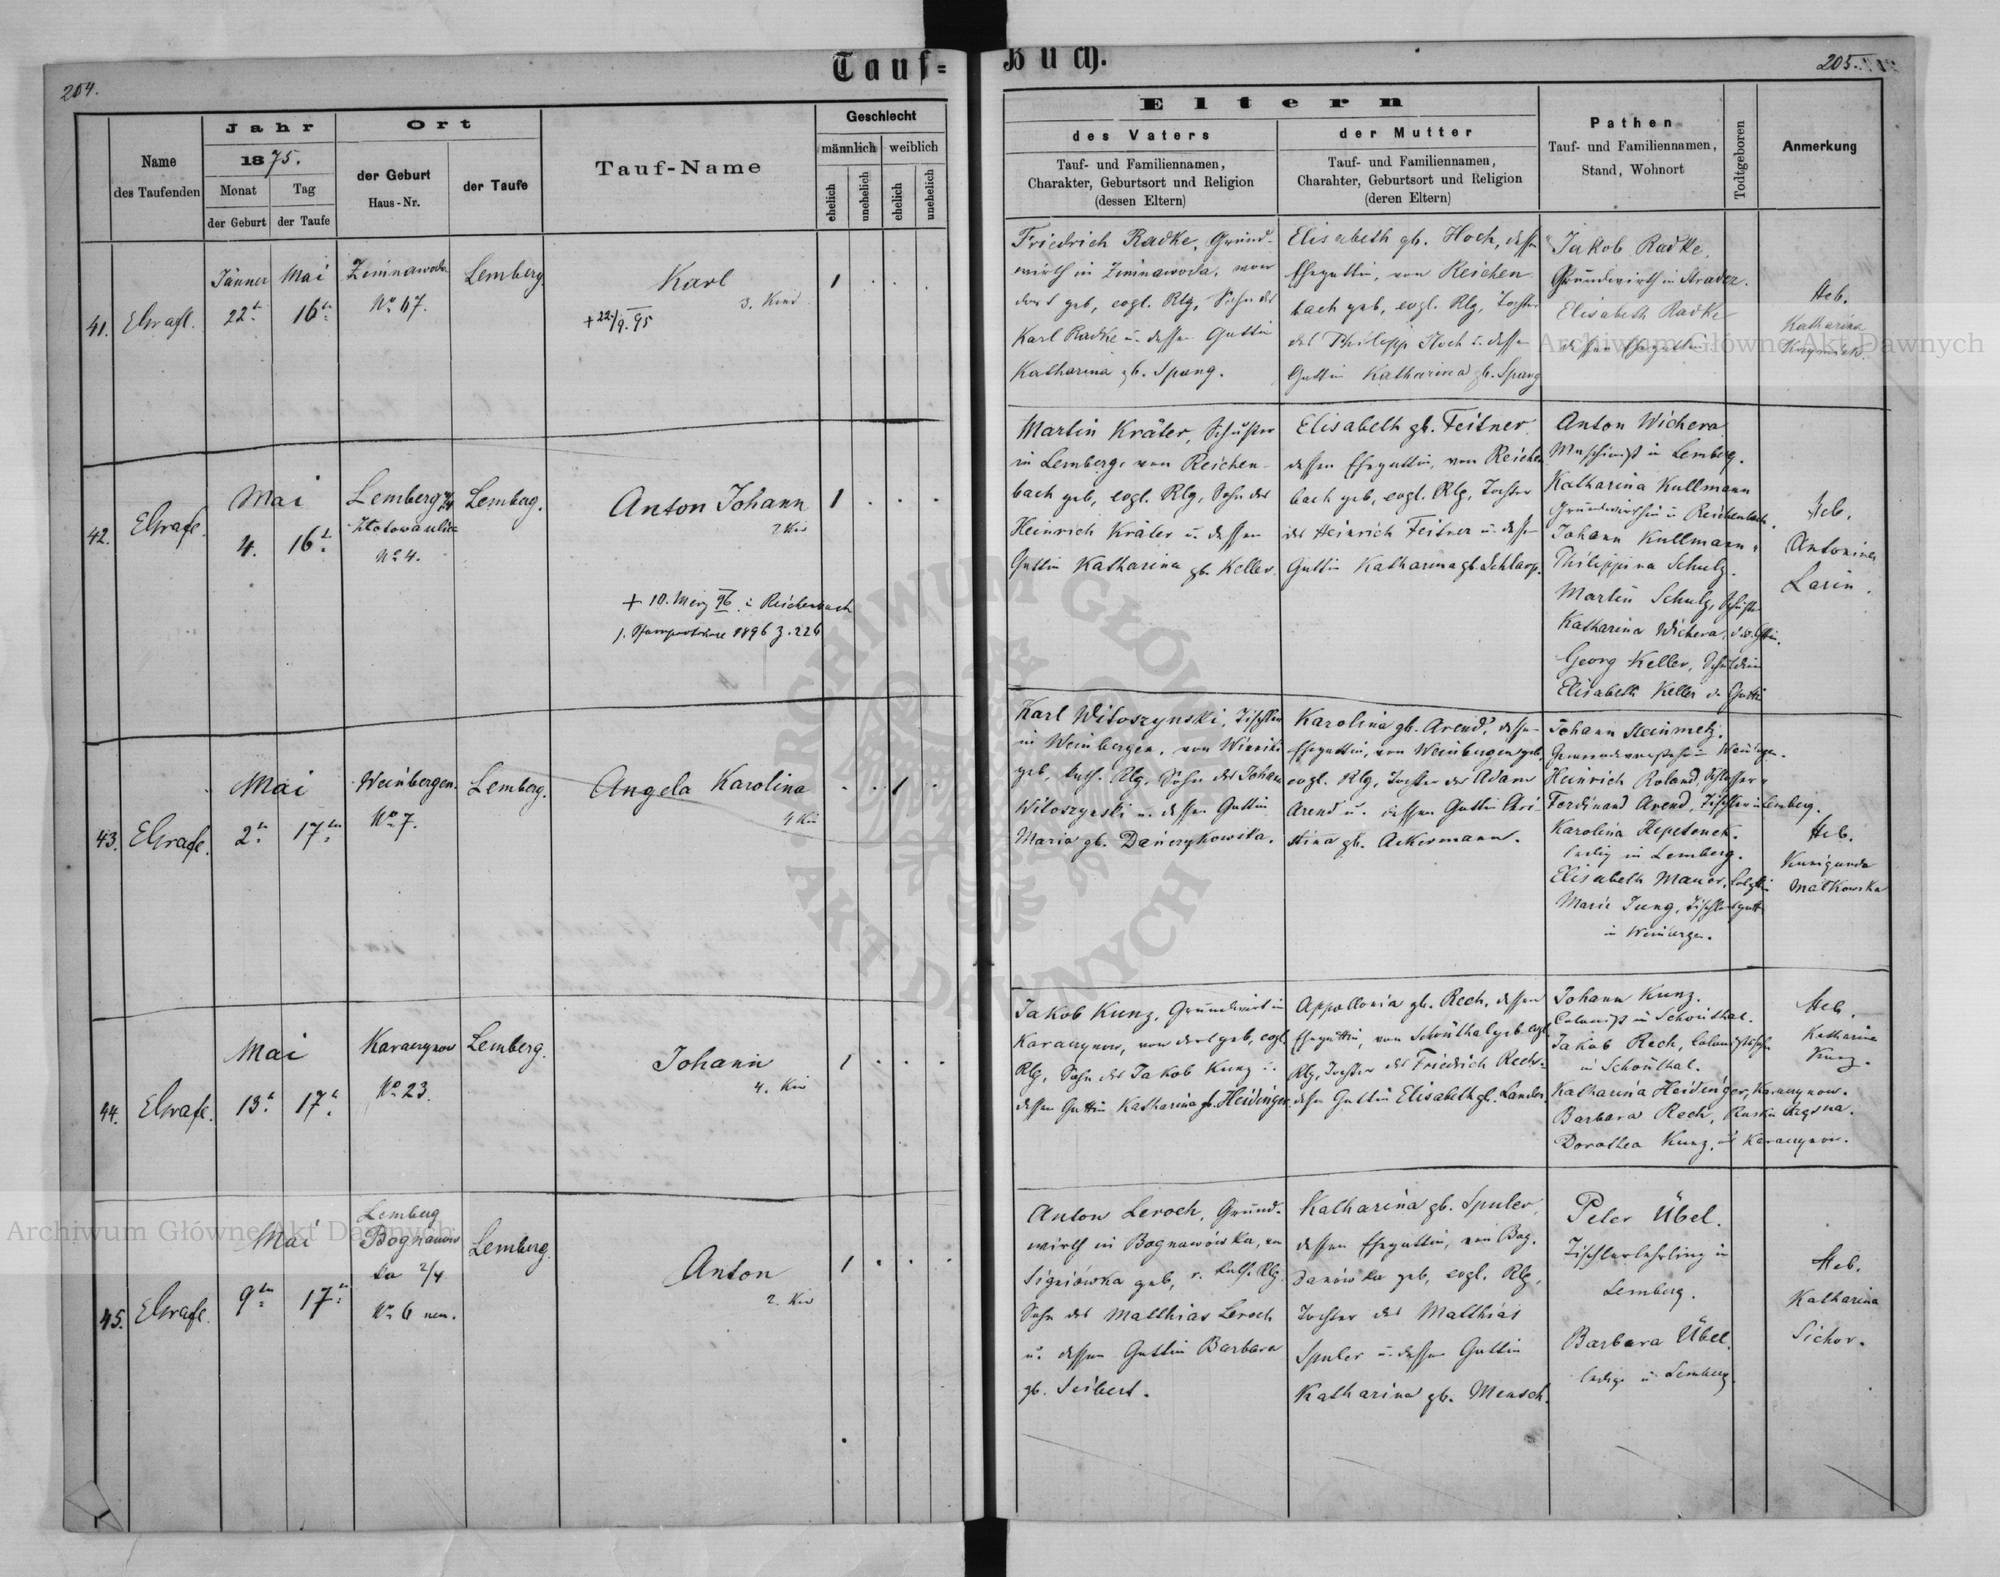 204.
Tauf-
Buch.
205.
Name
des Taufenden
Jahr
1875.
Monat
der Geburt
Tag
der Taufe
Ort
der Geburt
Haus-Nr.
der Taufe
Tauf-Name
Geschlecht
männlich
weiblich
ehelich
unehelich
ehelich
unehelich
Eltern
des Vaters
Tauf- und Familiennamen,
Charakter, Geburtsort und Religion
(dessen Eltern)
der Mutter
Tauf- und Familiennamen,
Charahter, Geburtsort und Religion
(deren Eltern)
Pathen
Tauf- und Familiennamen,
Stand, Wohnort
Todtgeboren
Anmerkung
41.
Jänner
22
Mai
16
Zimnawoda
No 67.
Lemberg
Karl
3. Kind
+ 22/9. 95
1
Friedrich Radke, Grund-
wirth in Zimnawoda, von
dort geb, evgl. Rlg, Sohn des
Karl Radke u. dessen Gattin
Katharina gb. Spang.
Elisabeth gb. Hoch, dessen
Ehegattin, von Reichen
bach geb, evgl. Rlg, Tochter
des Philipp Hoch u. dessen
Gattin Katharina gb. Spang
Jakob Radke,
Grundwirth in
Elisabeth Radke
dessen Ehegattin
Heb.
Katharina
42.
Mai
4.
16
Lemberg
No 4.
Lemberg.
Anton Johann
2 Kind
+ 10. März 96 in Reichenbach
1896 Z. 226
1
Martin Kräter, Schuster
in Lemberg, von Reichen-
bach geb, evgl. Rlg, Sohn des
Heinrich Kräter u. dessen
Gattin Katharina gb. Keller.
Elisabeth gb. Feitner
dessen Ehegattin, von Reichen
bach geb, evgl. Rlg, Tochter
des Heinrich Feitner u. dessen
Gattin Katharina gb. Schlarp.
Anton Wichera
Maschinist in Lemberg.
Katharina Kullmann
Grundwirthin in Reichenbach.
Johann Kullmann
Philippina Schulz.
Martin Schulz, Schuster
Katharina Wichera,
Georg Keller,
Elisabeth Keller
Heb.
Antonina
Larin.
43.
Mai
2
17
Weinbergen.
No 7.
Lemberg.
Angela Karolina
4 Kind
1
Karl Witoszynski, Tischler
in Weinbergen, von Winniki
geb, kath. Rlg, Sohn des Johann
Witoszynski u. dessen Gattin
Maria gb. Danczykowska.
Karolina gb. Arend, dessen
Ehegattin, von Weinbergen geb,
evgl. Rlg, Tochter des Adam
Arend u. dessen Gattin Chri
stina gb. Ackermann.
Johann Steinmetz.
Heinrich Roland, Schlosser
Ferdinand Arend, Tischler in Lemberg.
Karolina Hepetonek.
ledig in Lemberg.
Elisabeth Mauer,
Marie Jung,
in Weinbergen.
Heb.
Kunigunda
Matkowska
44.
Mai
13.
17.
Karaczynow
No 23.
Lemberg.
Johann
4. Kind
1
Jakob Kunz, Grundwirt in
Karaczynow, von dort geb, evgl
Rlg, Sohn des Jakob Kunz u.
dessen Gattin Katharina gb. Heidinger.
Appollonia gb. Rech, dessen
Ehegattin, von Schönthal geb. evgl.
Rlg, Tochter des Friedrich Rech u.
dessen Gattin Elisabeth gb. Lander.
Johann Kunz.
Colonist in Schönthal.
Jakob Rech, Colonist
in Schönthal.
Katharina Heidinger, Karaczynow.
Barbara Rech,
Dorothea Kunz, aus Karaczynow.
Heb.
Katharina
Kunz.
45.
Mai
9
17
Lemberg
2/4
No 6 neu.
Lemberg.
Anton
2. Kind
1
Anton Leroch, Grund-
wirth in Bognanówka, zu
Signiówka geb, r. kath. Rlg
Sohn des Matthias Leroch
u. dessen Gattin Barbara
gb. Seibert.
Katharina gb. Spuler,
dessen Ehegattin, von Bog
danówka geb, evgl. Rlg,
Tochter des Matthias
Spuler u. dessen Gattin
Katharina gb. Mensch.
Peter Übel.
Tischlerlehrling in
Lemberg.
Barbara Übel,
ledig in Lemberg.
Heb.
Katharina
Sichor.
Archiwum Główne Akt Dawnych
Archiwum Główne Akt Dawnych
ARCHIWUM GŁÓWNE
AKT DAWNYCH